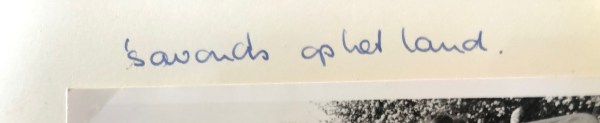 's avonds op het land.